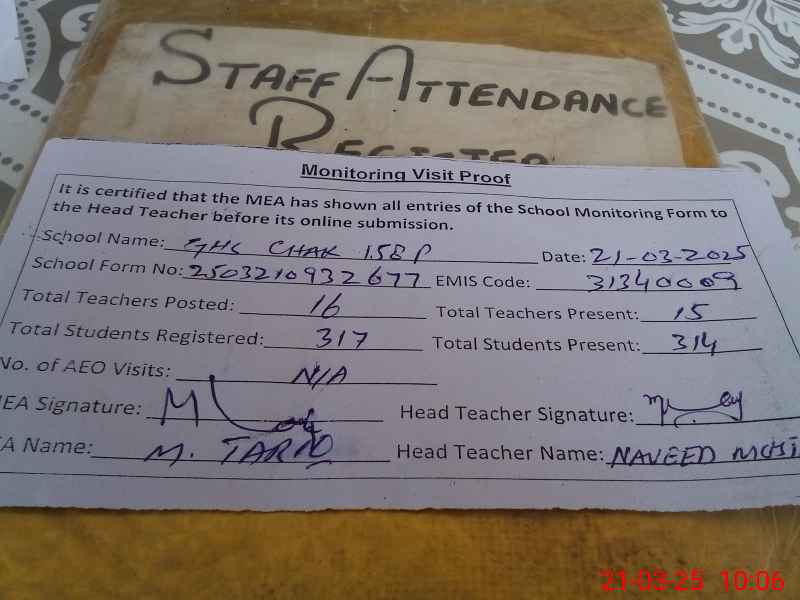 STAFF ATTENDANCE
REGISTER
Monitoring Visit Proof
It is certified that the MEA has shown all entries of the School Monitoring Form to
the Head Teacher before its online submission.
School Name: GHS CHAK 15BP Date: 21-03-2025
School Form No: 2503210932677 EMIS Code: 31340009
Total Teachers Posted: 16 Total Teachers Present: 15
Total Students Registered: 317 Total Students Present: 314
No. of AEO Visits: N/A
MEA Signature: Head Teacher Signature:
EA Name: M. TARIQ Head Teacher Name: NAVEED
21-03-25 10:06